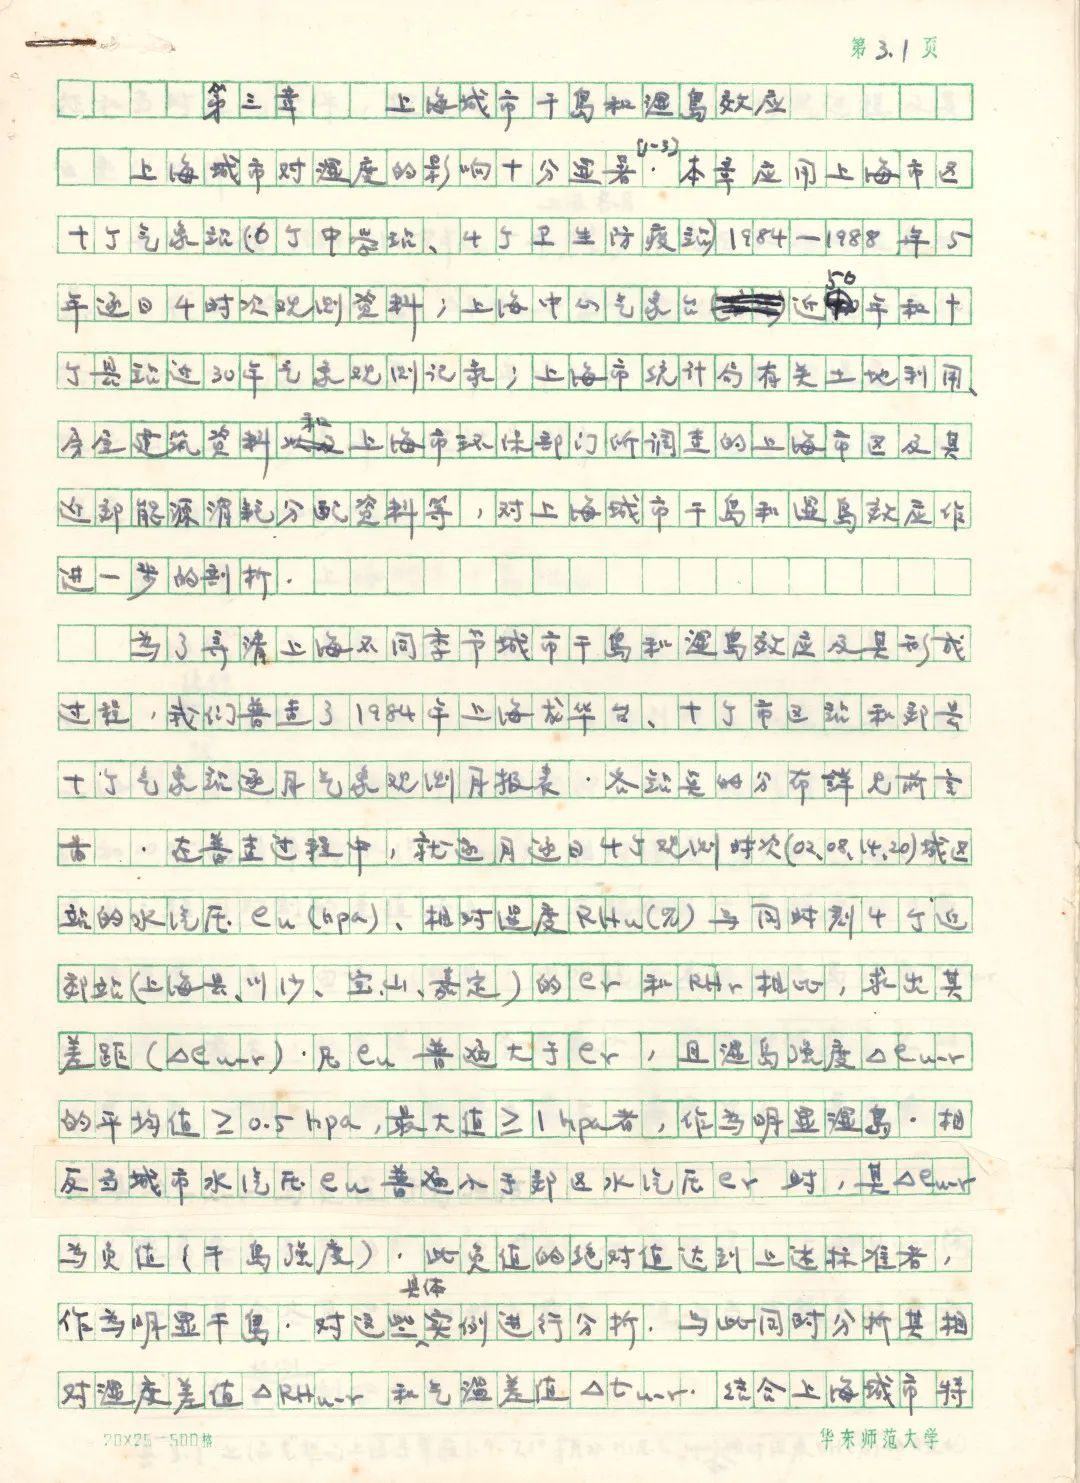 第3.1页
第三章 上海城市干岛和湿岛效应
上海城市对湿度的影响十分显著[1-3]. 本章应用上海市区
十个气象站(6个中学站、4个卫生防疫站)1984—1988年5
年逐日4时次观测资料;上海中心气象台近50年和十
个县站近30年气象观测记录;上海市统计局有关土地利用、
房屋建筑资料和上海市环保部门所调查的上海市区及其
近郊能源消耗分配资料等,对上海城市干岛和湿岛效应作
进一步的剖析.
为了弄清上海不同季节城市干岛和湿岛效应及其形成
过程,我们普查了1984年上海龙华台、十个市区站和郊县
十个气象站逐月气象观测月报表.各站点的分布詳见前言
.在普查过程中,就逐月逐日4个观测时次(02、08、14、20)城区
站的水汽压eu(hpa)、相对湿度RHu(%)与同时刻4个近
郊站(上海县、川沙、宝山、嘉定)的er和RHr相比,求出其
差距(△eu-r).凡eu普遍大于er,且湿岛强度△eu-r
的平均值≥0.5hpa,最大值≥1hpa者,作为明显湿岛.相
反当城市水汽压eu普遍小于郊区水汽压er时,其△eu-r
为负值(干岛强度).此负值的绝对值达到上述标准者,
作为明显干岛.对这些具体实例进行分析.与此同时分析其相
对湿度差值△RHu-r和气温差值△tu-r.结合上海城市特
20×25=500格
华东师范大学